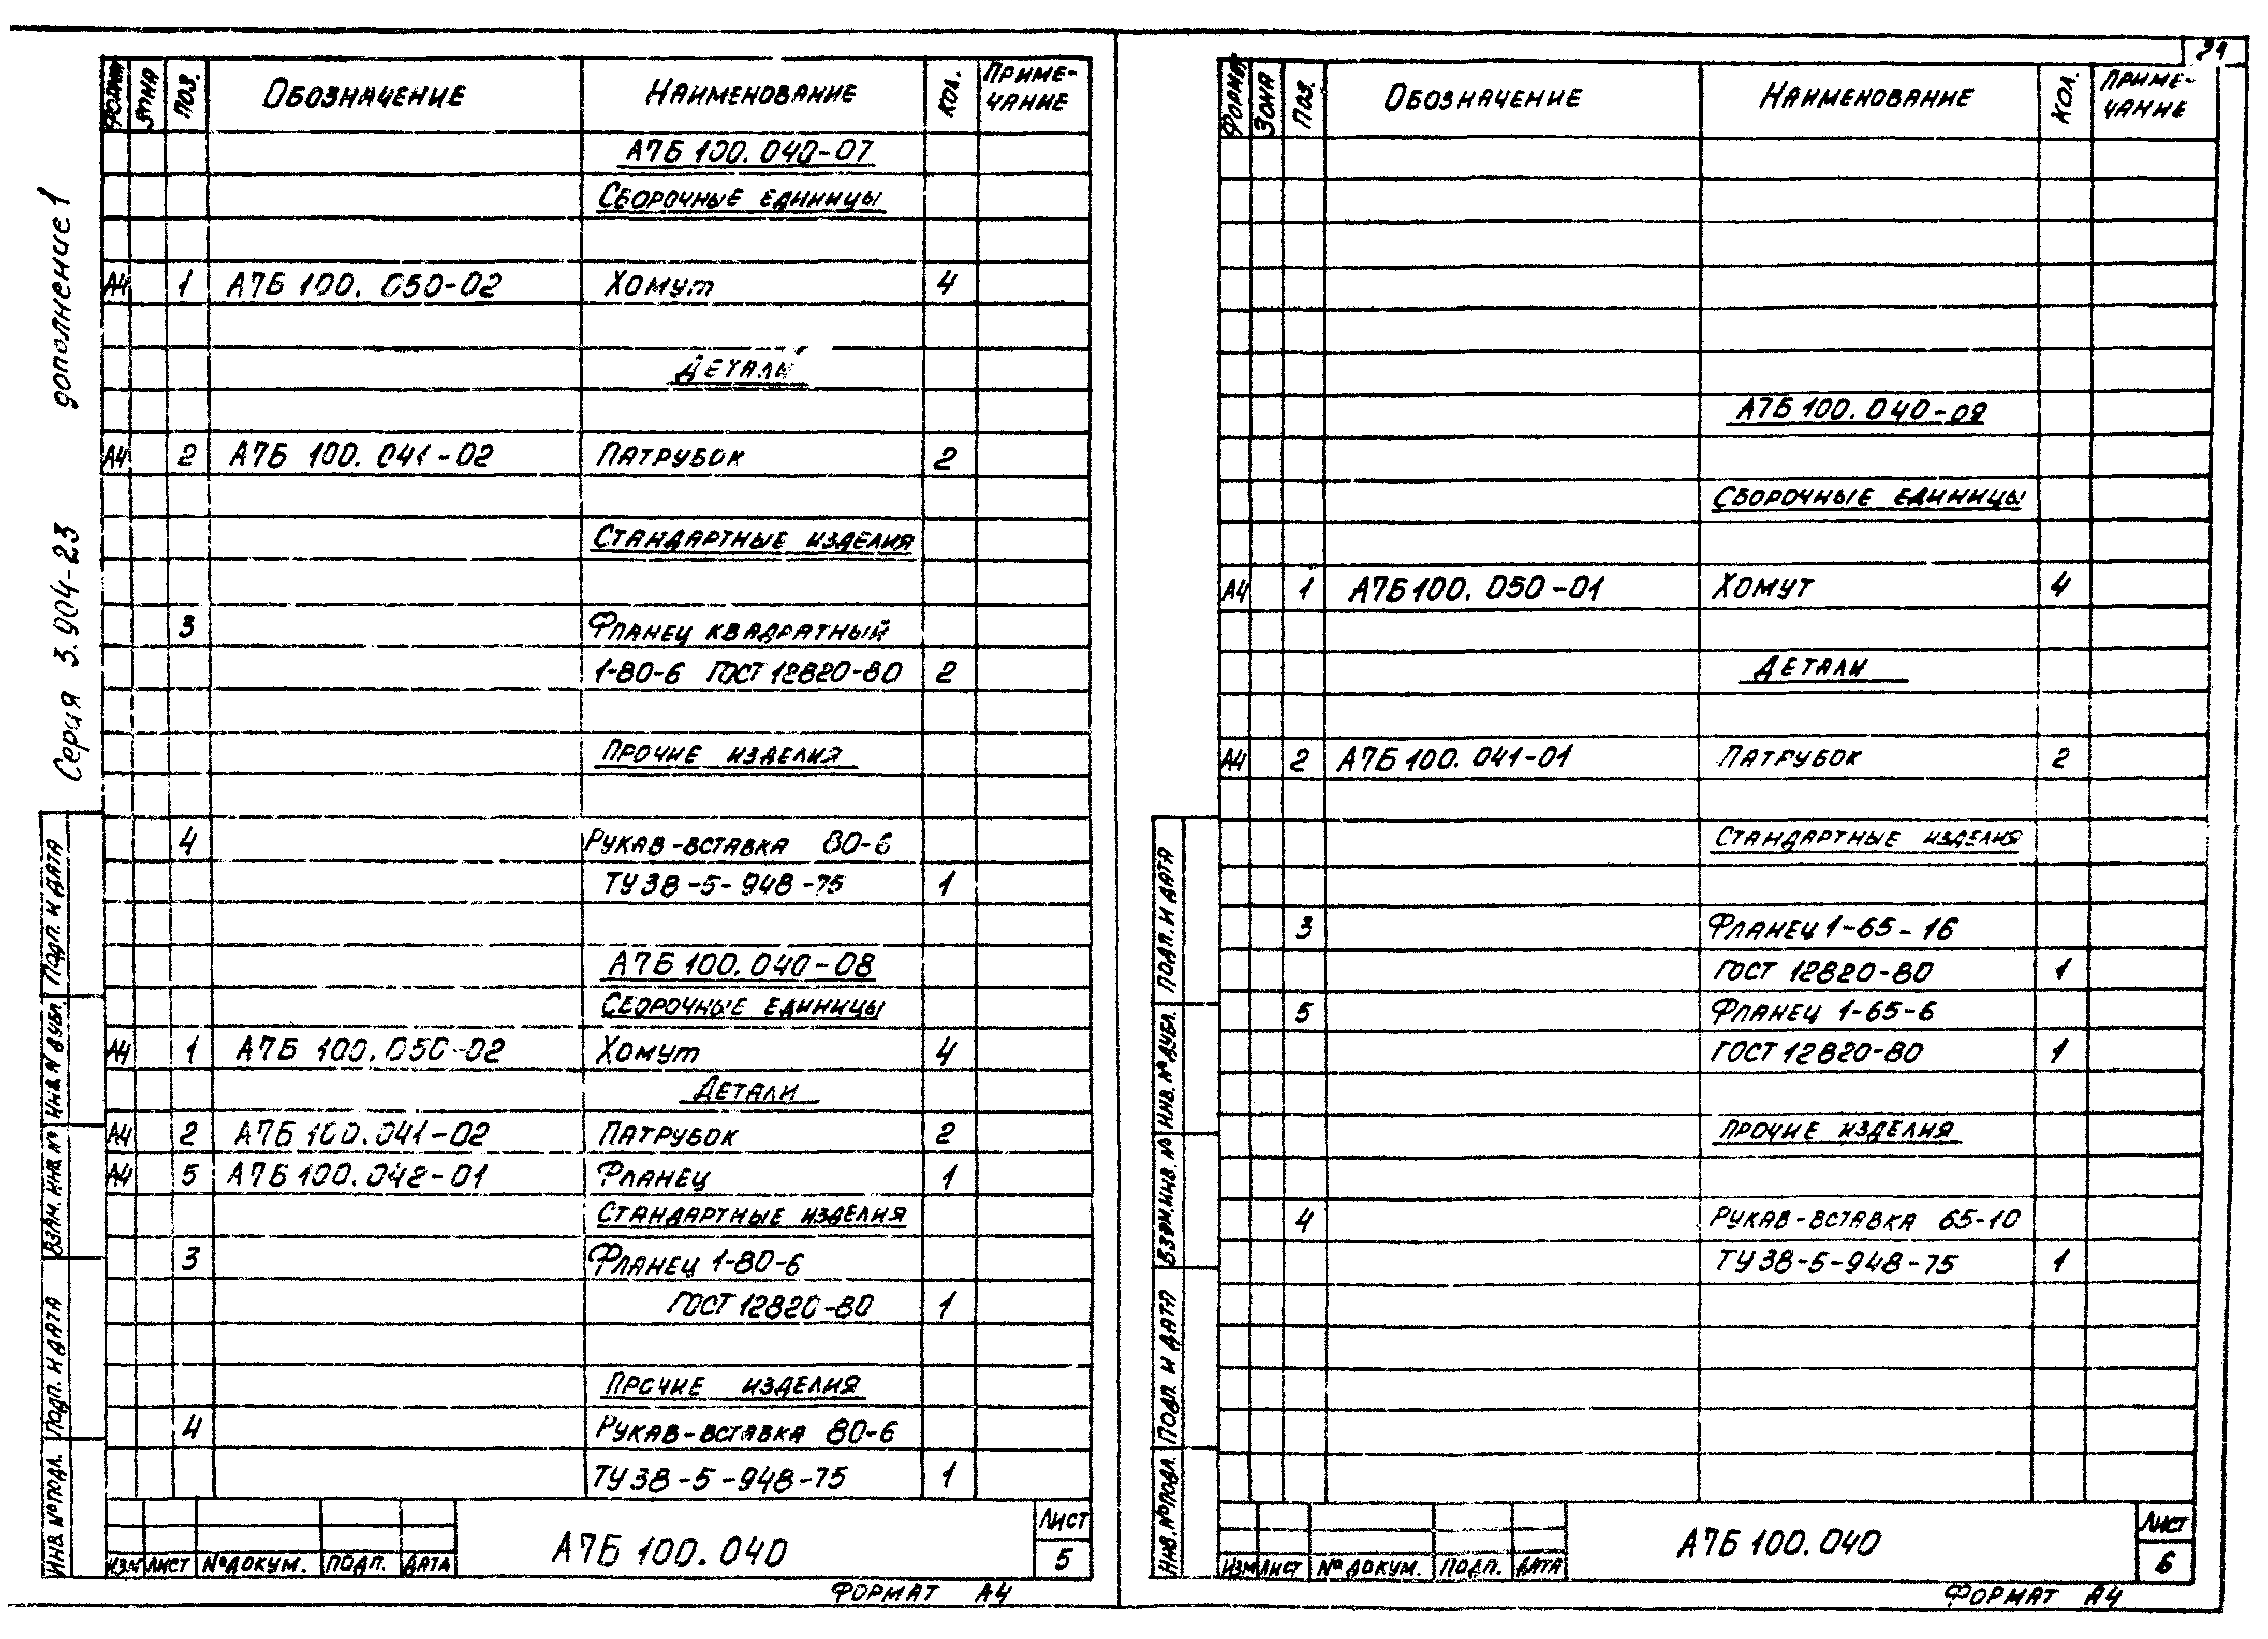 дополнение 1
Серия 3.904-23
ФОРМАТ ЗОНА ПОЗ. ОБОЗНАЧЕНИЕ НАИМЕНОВАНИЕ КОЛ. ПРИМЕ-
ЧАНИЕ
А7Б 100.040-07
СБОРОЧНЫЕ ЕДИНИЦЫ
А4 1 А7Б 100.050-02 ХОМУТ 4
ДЕТАЛИ
А4 2 А7Б 100.041-02 ПАТРУБОК 2
СТАНДАРТНЫЕ ИЗДЕЛИЯ
3 ФЛАНЕЦ КВАДРАТНЫЙ
1-80-6 ГОСТ 12820-80 2
ПРОЧИЕ ИЗДЕЛИЯ
4 РУКАВ-ВСТАВКА 80-6
ТУ 38-5-948-75 1
А7Б 100.040-08
СБОРОЧНЫЕ ЕДИНИЦЫ
А4 1 А7Б 100.050-02 ХОМУТ 4
ДЕТАЛИ
А4 2 А7Б 100.041-02 ПАТРУБОК 2
А4 5 А7Б 100.042-01 ФЛАНЕЦ 1
СТАНДАРТНЫЕ ИЗДЕЛИЯ
3 ФЛАНЕЦ 1-80-6
ГОСТ 12820-80 1
ПРОЧИЕ ИЗДЕЛИЯ
4 РУКАВ-ВСТАВКА 80-6
ТУ 38-5-948-75 1
ПОДП. И ДАТА
ИНВ. № ДУБЛ.
ВЗАМ. ИНВ. №
ПОДП. И ДАТА
ИНВ. № ПОДЛ.
ИЗМ ЛИСТ № ДОКУМ. ПОДП. ДАТА
А7Б 100.040
ЛИСТ
5
ФОРМАТ А4
31
ФОРМАТ ЗОНА ПОЗ. ОБОЗНАЧЕНИЕ НАИМЕНОВАНИЕ КОЛ. ПРИМЕ-
ЧАНИЕ
А7Б 100.040-09
СБОРОЧНЫЕ ЕДИНИЦЫ
А4 1 А7Б 100.050-01 ХОМУТ 4
ДЕТАЛИ
А4 2 А7Б 100.041-01 ПАТРУБОК 2
СТАНДАРТНЫЕ ИЗДЕЛИЯ
3 ФЛАНЕЦ 1-65-16
ГОСТ 12820-80 1
5 ФЛАНЕЦ 1-65-6
ГОСТ 12820-80 1
ПРОЧИЕ ИЗДЕЛИЯ
4 РУКАВ-ВСТАВКА 65-10
ТУ 38-5-948-75 1
ПОДП. И ДАТА
ИНВ. № ДУБЛ.
ВЗАМ. ИНВ. №
ПОДП. И ДАТА
ИНВ. № ПОДЛ.
ИЗМ ЛИСТ № ДОКУМ. ПОДП. ДАТА
А7Б 100.040
ЛИСТ
6
ФОРМАТ А4